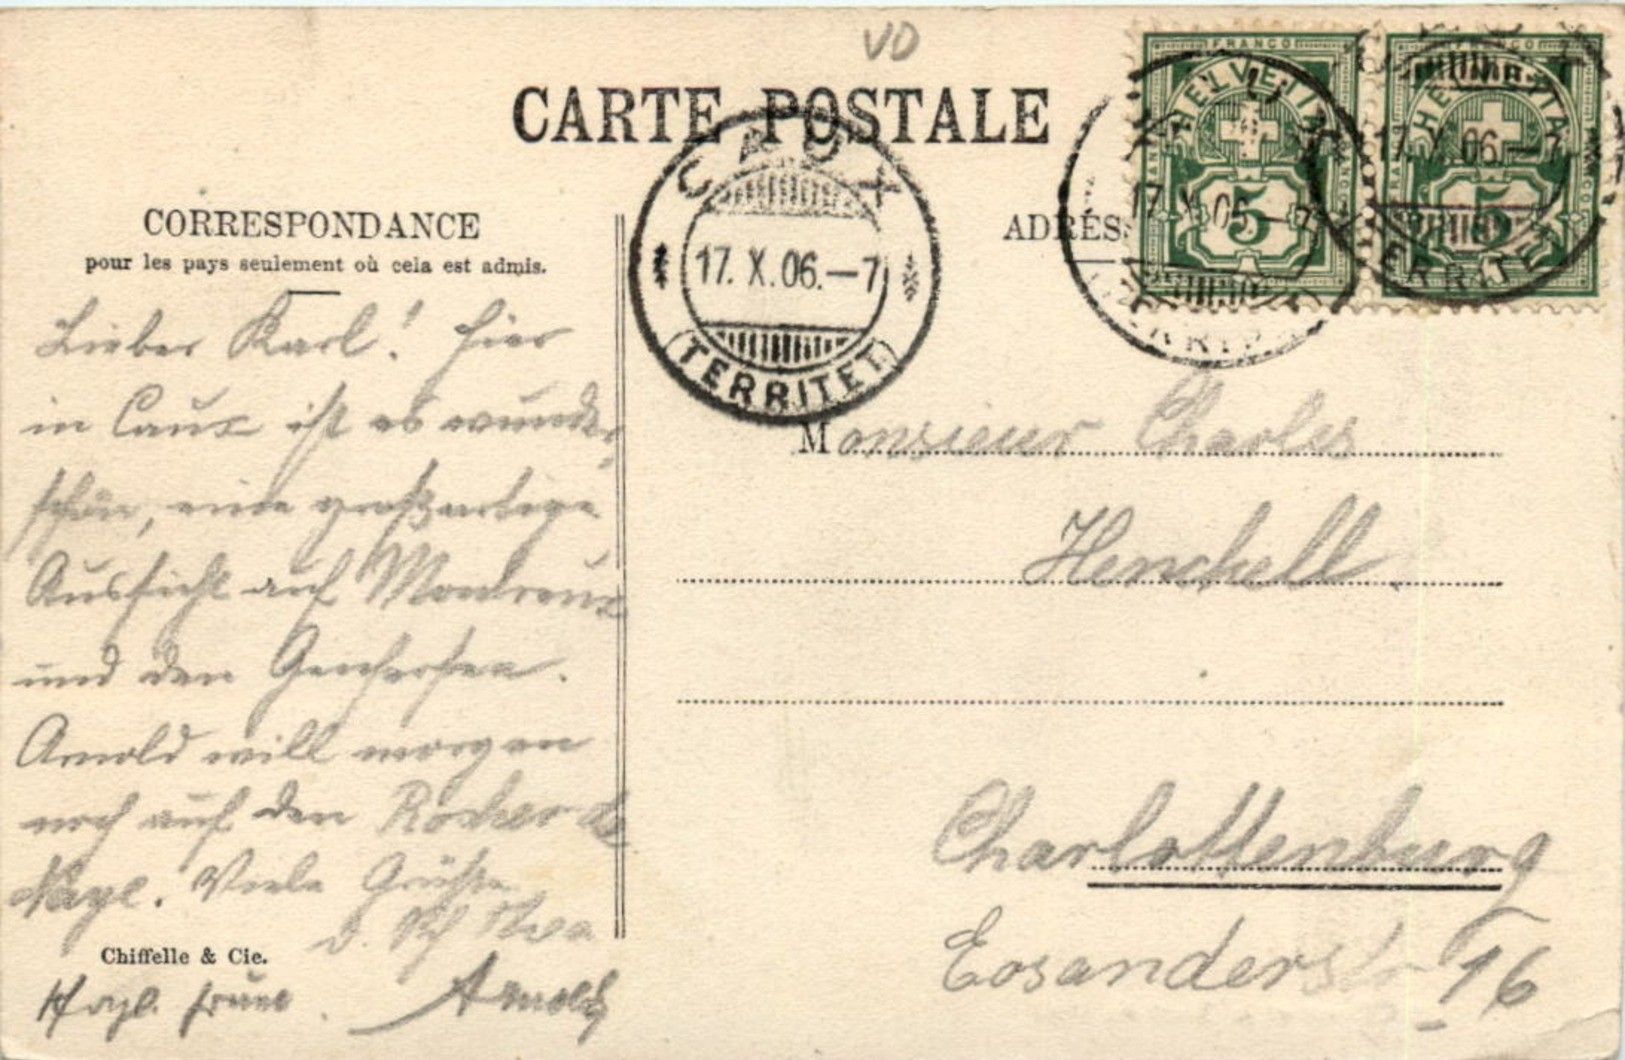 VD
CARTE POSTALE
CORRESPONDANCE
pour les pays seulement où cela est admis.
ADRES
FRANCO
HELVETIA
5
FRANCO
HELVETIA
5
CAUX
17. X. 06.—7
(TERRITET)
17. X. 06.—7
TERRITET
17. X. 06.—7
TERRITET
Lieber Karl! Hier
in Caux ist es wunder
schön, eine großartige
Aussicht auf Montreux
und den Genfersee.
Arnold will morgen
noch auf den Rocher de
Naye. Viele Grüße
Chiffelle & Cie.
Arnold
Monsieur Charles
Henckell.
Charlottenburg
Eosanderstr 16